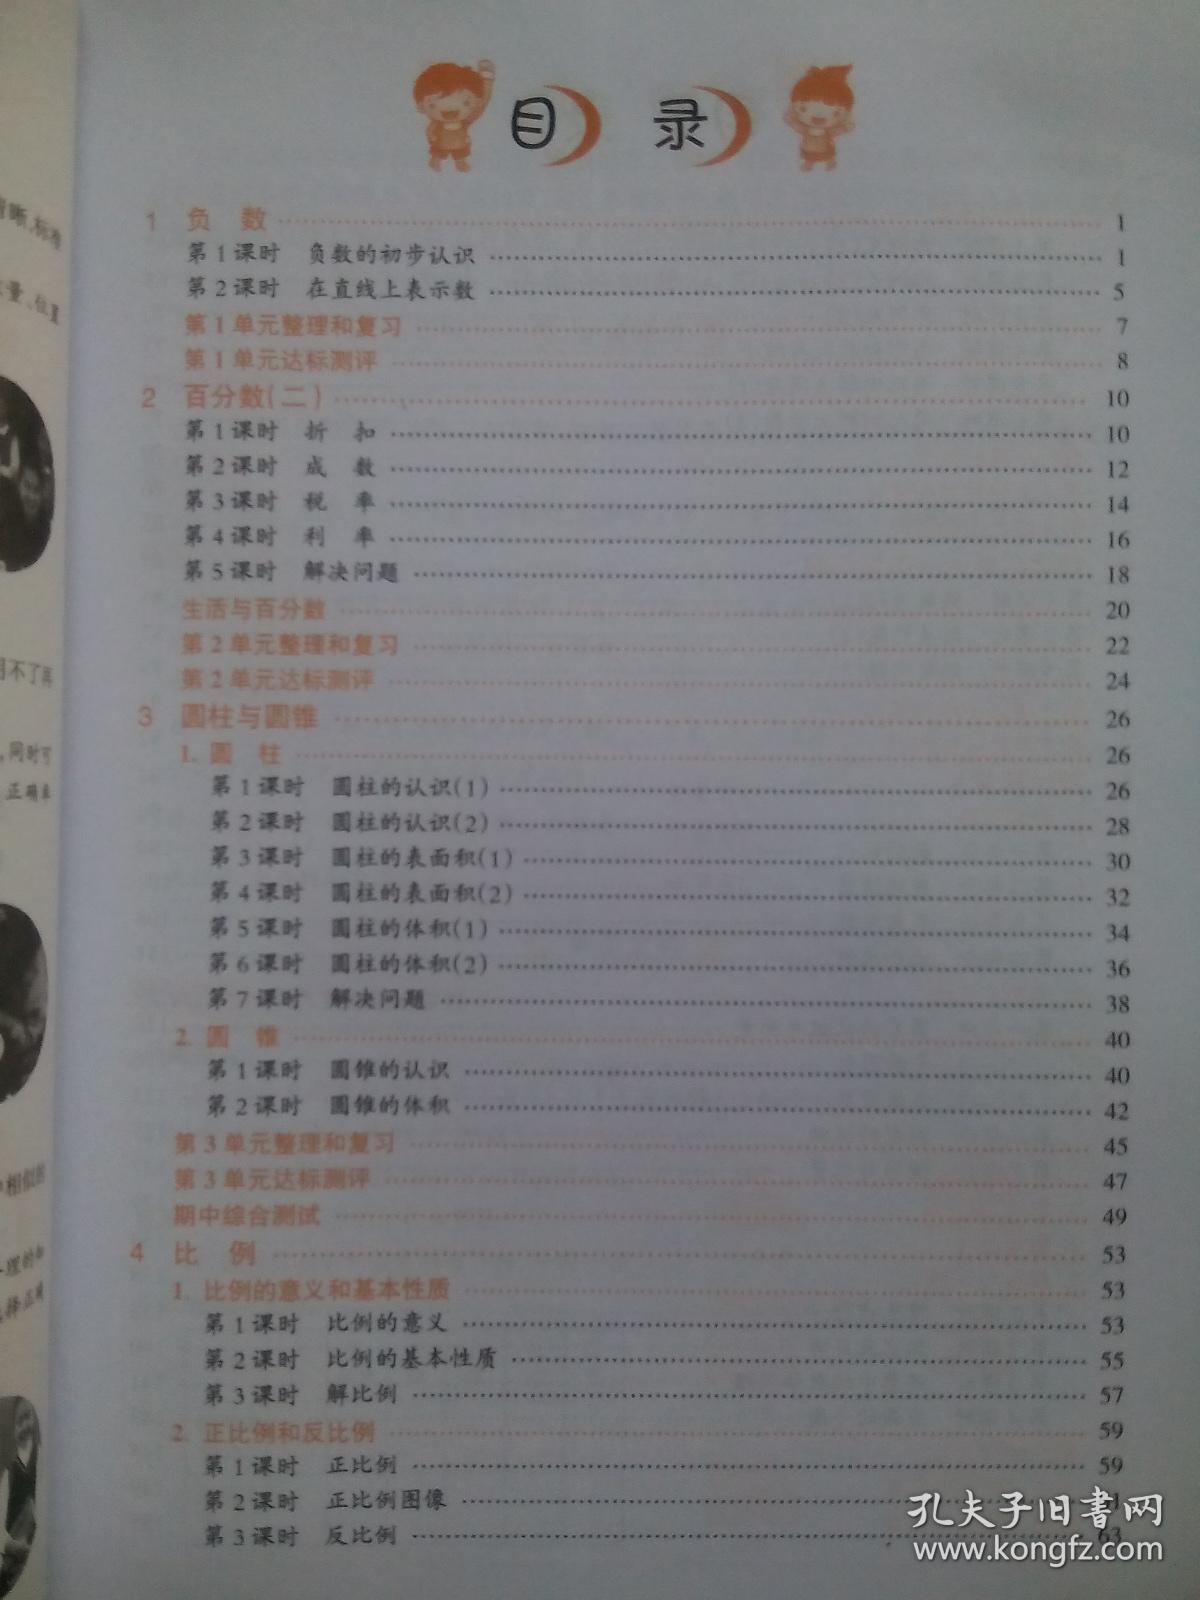 目 录
1 负 数 1
第1课时 负数的初步认识 1
第2课时 在直线上表示数 5
第1单元整理和复习 7
第1单元达标测评 8
2 百分数(二) 10
第1课时 折 扣 10
第2课时 成 数 12
第3课时 税 率 14
第4课时 利 率 16
第5课时 解决问题 18
生活与百分数 20
第2单元整理和复习 22
第2单元达标测评 24
3 圆柱与圆锥 26
1. 圆 柱 26
第1课时 圆柱的认识(1) 26
第2课时 圆柱的认识(2) 28
第3课时 圆柱的表面积(1) 30
第4课时 圆柱的表面积(2) 32
第5课时 圆柱的体积(1) 34
第6课时 圆柱的体积(2) 36
第7课时 解决问题 38
2. 圆 锥 40
第1课时 圆锥的认识 40
第2课时 圆锥的体积 42
第3单元整理和复习 45
第3单元达标测评 47
期中综合测试 49
4 比 例 53
1. 比例的意义和基本性质 53
第1课时 比例的意义 53
第2课时 比例的基本性质 55
第3课时 解比例 57
2. 正比例和反比例 59
第1课时 正比例 59
第2课时 正比例图像
第3课时 反比例 63
孔夫子旧書网
www.kongfz.com
量、位置
不了再
,同时可
正确率
相似的